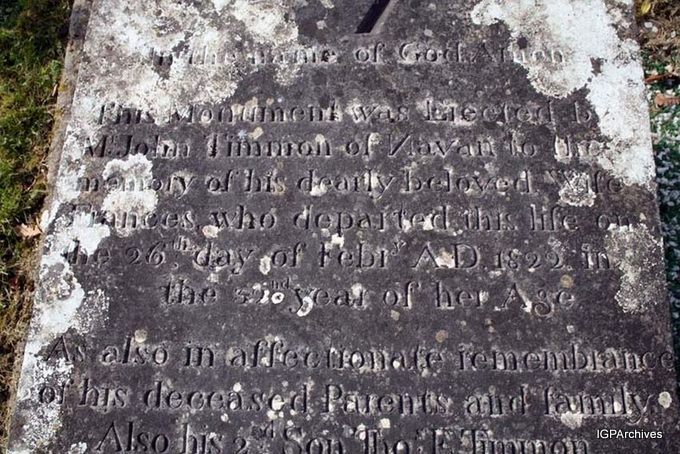 In the name of God Amen
This Monument was Erected by
Mr John Timmon of Navan to the
memory of his dearly beloved Wife
Frances who departed this life on
the 26th day of Febry A.D 1822 in
the 52nd year of her Age
As also in affectionate remembrance
of his deceased Parents and family
Also his 2nd Son Thos F. Timmon
IGPArchives